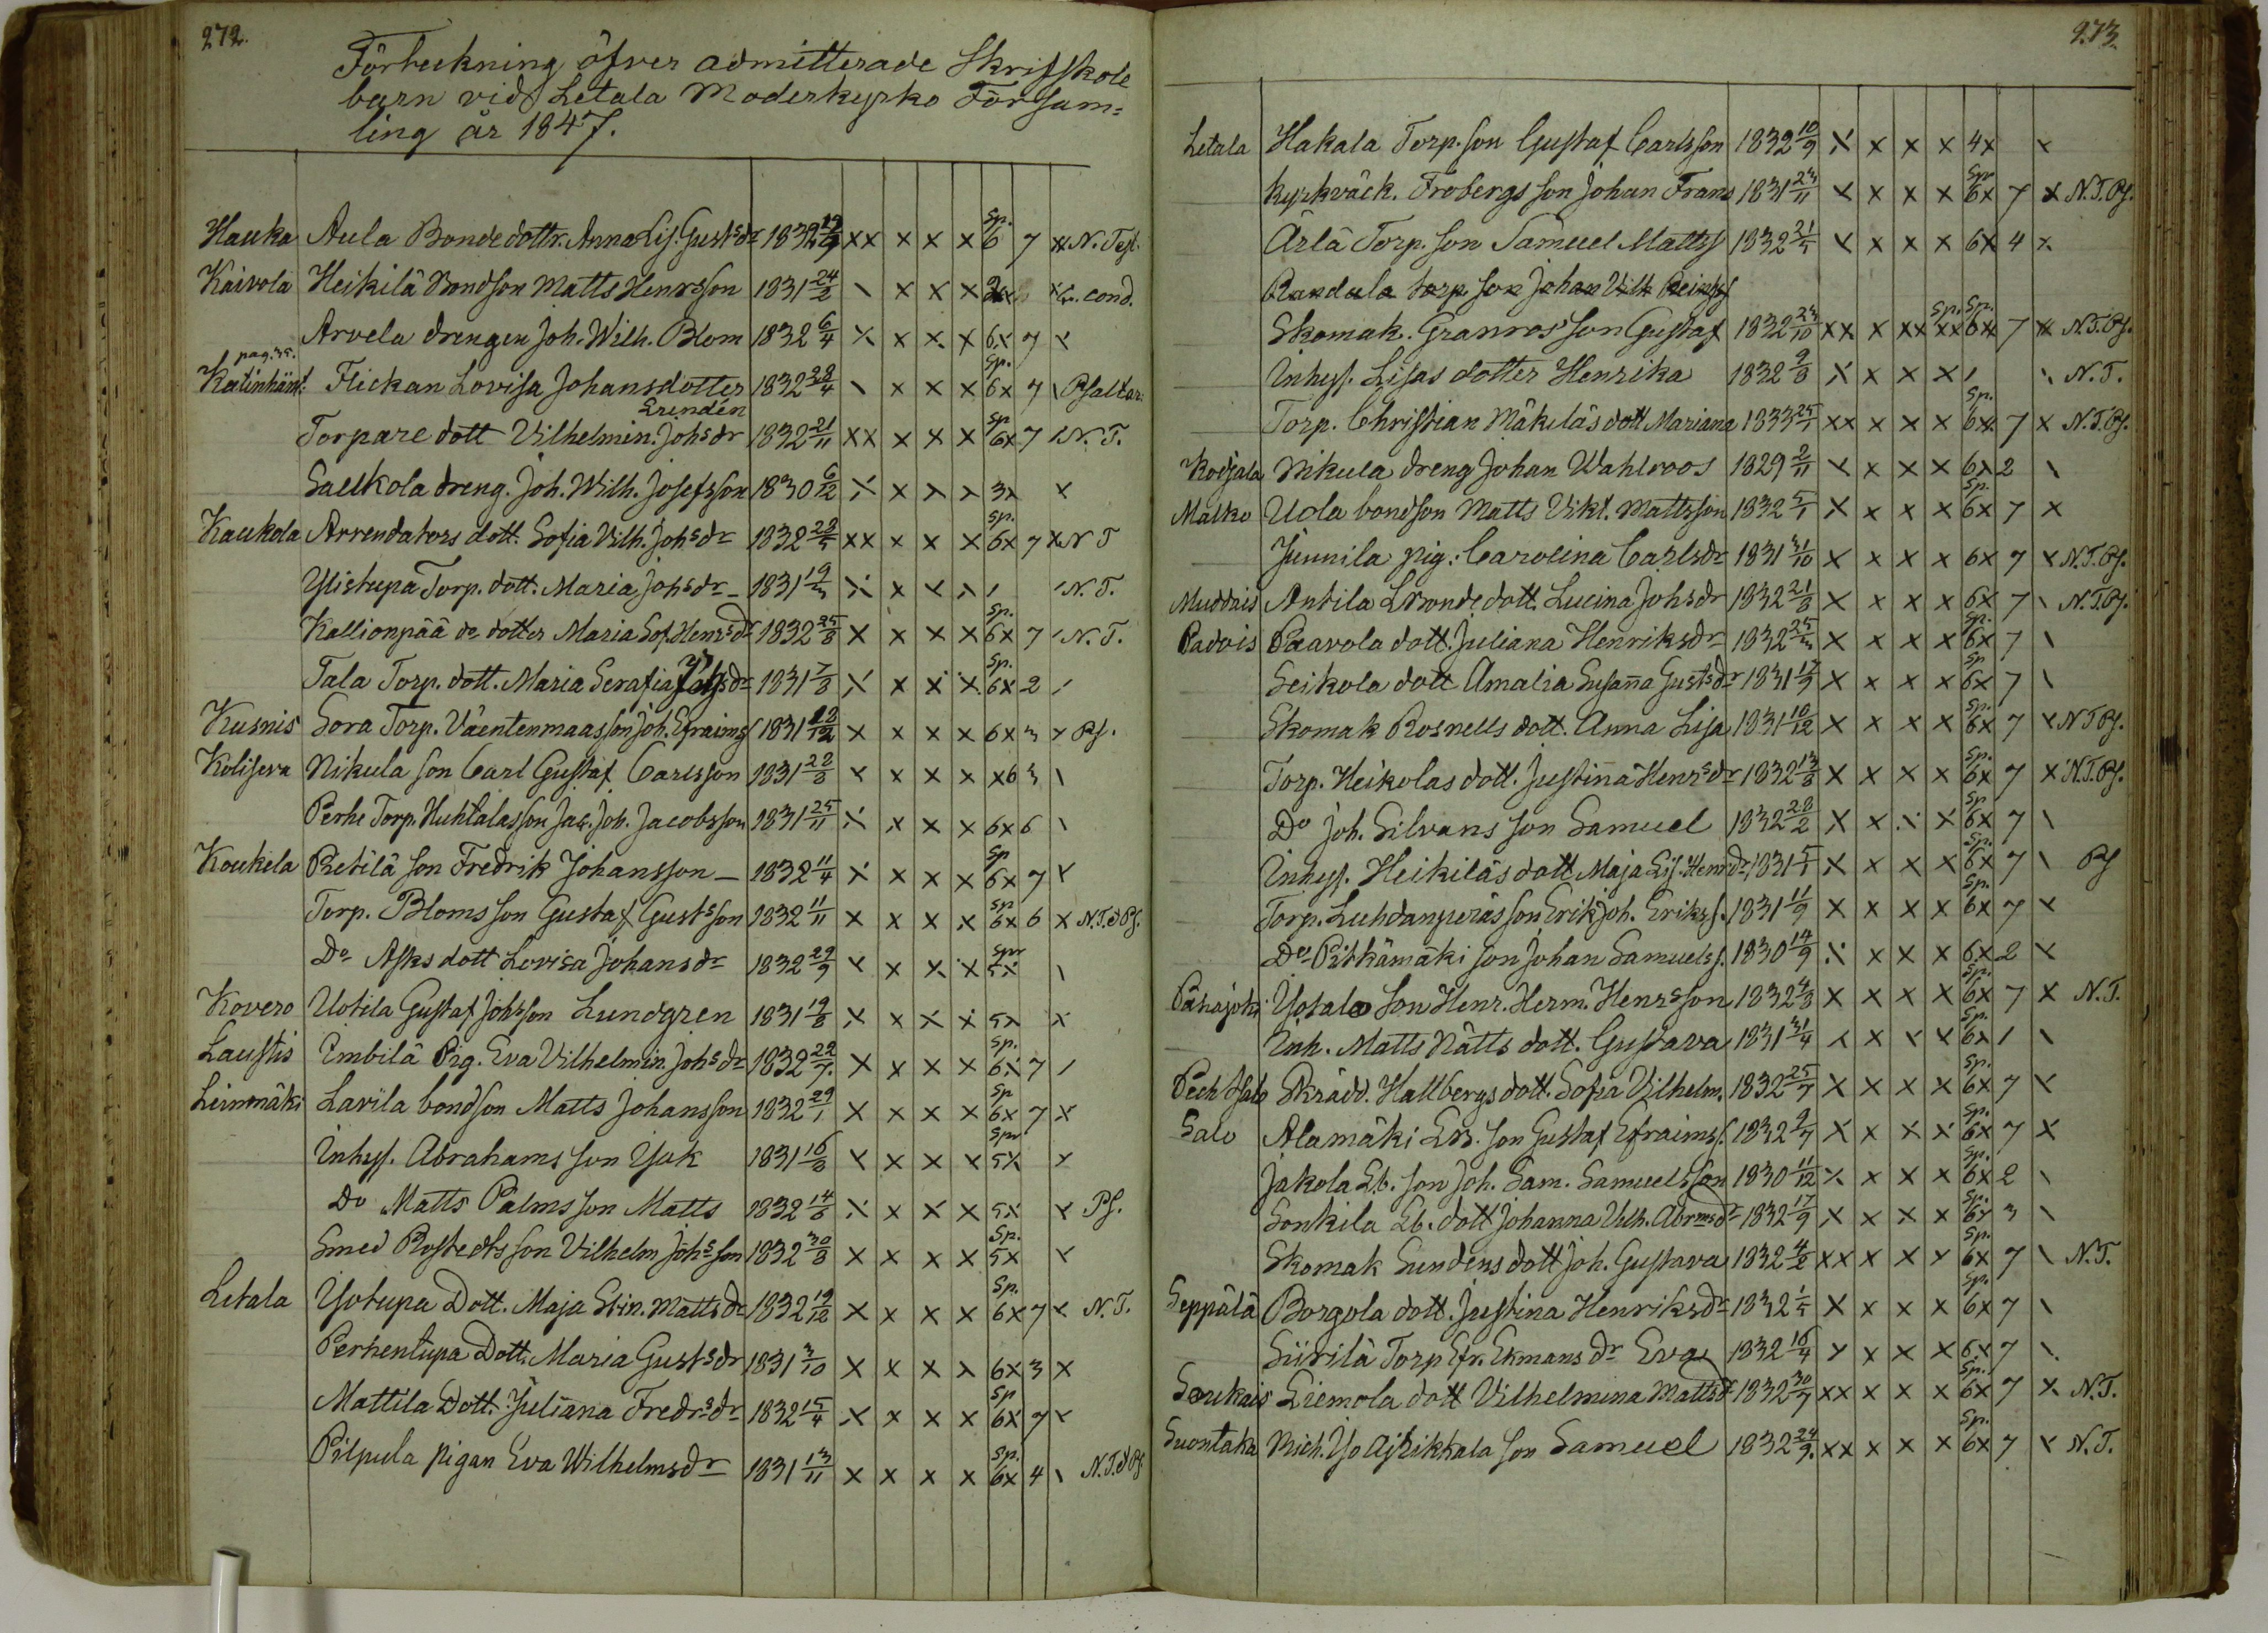 272.
Förteckning öfver admitterade Skriftskole
barn vid Letala Moderkyrko Försam=
ling år 1847.
Hauka Aula Bonde dottr. Anna Lis. Gustsdr 1832 19/9 xx x x x Sp. 6 7 x N. Test.
Kaivola Heikilä Bondson Matts Henrsson 1831 24/2 \ x x x x cond.
Arvela drengen Joh. Wilh. Blom 1832 6/4 x x x x 6x 7 x
pag. 35.
Katinhänt. Flickan Lovisa Johansdotter 1832 28/4 \ x x x Sp. 6x 7 \ Psaltar.
Grundén
Torpare dott Vilhelmin. Johsdr 1832 21/11 xx x x x Sp 6x 7 / N. T.
Saukola dreng. Joh. Wilh. Josefsson 1830 6/12 x x x x 3x x
Kaukola Arrendators dott. Sofia Vilh. Johsdr 1832 22/5 xx x x x Sp. 6x 7 x N T
Ylistupa Torp. dott. Maria Johsdr 1831 19/3 x x x x / / N. T.
Kallionpää do dotter Maria Sof. Henrsdr 1832 25/8 x x x x Sp. 6x 7 / N. T.
Tala Torp. dott. Maria Serafia 1831 7/8 x x x x Sp. 6x 2 /
Kusnis Sora Torp. Väentenmaas son Joh. Efraims 1831 12/12 x x x x 6x 3 x Ps.
Koliseva Nikula son Carl Gustaf Carlsson 1831 22/8 x x x x x6 3 \
Perhe Torp. Huhtalas son Jac. Joh. Jacobsson 1831 25/11 x x x x 6x 6 \
Koukela Retilä son Fredrik Johansson 1832 11/4 x x x x Sp 6x 7 x
Torp. Bloms son Gustaf Gustsson 1832 11/11 x x x x Sp 6x 6 x N. T. & Ps.
Do Asks dott Lovisa Johansdr 1832 29/9 x x x x Spr 5x \
Kovero Uotila Gustaf Johsson Lundgren 1831 19/8 x x x x 5x x
Laustis Embilä Pig. Eva Vilhelmin. Johsdr 1832 22/7 x x x x Sp. 6x 7 /
Leinmäki Larila bondson Matts Johansson 1832 29/1 x x x x Sp 6x 7 x
Inhys. Abrahams son Isak 1831 16/8 x x x x Spr 5x x
Do Matts Palms son Matts 1832 14/8 x x x x 5x x Ps.
Smed Rostedts son Vilhelm Johsson 1832 30/8 x x x x Sp. 5x x
Letala Yotupa Dott. Maja Stin. Mattsdr 1832 19/12 x x x x Sp. 6x 7 x N. T.
Perhentupa Dott. Maria Gustsdr 1831 3/10 x x x x 6x 3 x
Mattila Dott. Juliana Fredrsdr 1832 15/4 x x x x Sp 6x 7 x
Pilpula pigan Eva Wilhelmsdr 1831 13/11 x x x x Sp. 6x 4 \ N. T. & Ps
273.
Letala Hakala Torp. son Gustaf Carlsson 1832 10/9 x x x x 4x x
Kyrkväck. Frobergs son Johan Frans 1831 23/11 x x x x Sp 6x 7 x N. T. Ps.
Ärlä Torp. son Samuel Mattss 1832 21/5 x x x x 6x 4 x
Randala torp son Johan Vilh
Skomak. Granros son Gustaf 1832 23/10 xx x xx Sp. xx Sp. 6x 7 x N. T. Ps.
Inhys. Lisas dotter Henrika 1832 9/8 x x x x / \ N. T.
Torp. Christian Mäkiläs dott Mariana 1833 25/1 xx x x x Sp. 6x 7 x N. T. Ps.
Kodjala Nikula dreng Johan Wahlroos 1829 2/11 x x x x 6x 2 \
Malko Uola bondson Matts Vikt. Mattsson 1832 5/1 x x x x Sp. 6x 7 x
Junnila pig. Carolina Carlsdr 1831 31/10 x x x x 6x 7 x N. T. Ps.
Muddais Antila Lbonde dott. Lucina Johsdr 1832 21/8 x x x x 6x 7 \ N. T. Ps.
Padois Paavola dott. Juliana Henriksdr 1832 25/3 x x x x Sp. 6x 7 \
Seikola dott Amalia Susanna Gustsdr 1831 17/9 x x x x Sp 6x 7 \
Skomak Rosnells dott. Anna Lisa 1831 10/12 x x x x Sp. 6x 7 x N T Ps.
Torp. Heikolas dott. Justina Henrsdr 1832 13/8 x x x x Sp. 6x 7 x N. T. Ps.
Do Joh. Silvans son Samuel 1832 28/2 x x x x Sp 6x 7 \
Inhys. Heikiläs dott Maja Lis. Henrdr 1831 5/1 x x x x Sp. 6x 7 \ Ps
Torp. Luhdanperäs son Erik Joh. Erikss. 1831 11/9 x x x x Sp. 6x 7 x
Do Pitkämäki son Johan Samuelss. 1830 14/9 x x x x 6x 2 x
Pähäjoki Yotalo son Henr. Herm. Henrsson 1832 4/8 x x x x Sp. 6x 7 x N. T.
Inh. Matts Nätts dott. Gustava 1831 31/4 x x x x Sp. 6x 1 \
Skrädd. Hallbergs dott. Sofia Vilhelm. 1832 25/7 x x x x Sp. 6x 7 x
Salo Alamäki Lb. son Gustaf Efraimss. 1832 9/7 x x x x Sp. 6x 7 x
Jakola Lb. son Joh. Sam. Samuelsson 1830 11/12 x x x x Sp. 6x 2 \
Sonkila Lb. dott Johanna Vilh. Abrmsdr 1832 17/9 x x x x Sp. 6x 3 \
Skomak Sundens dott Joh. Gustava 1832 4/2 xx x x x Sp. 6x 7 \ N. T.
Seppälä Borgola dott. Justina Henriksdr 1832 1/5 x x x x Sp. 6x 7 \
Siirilä Torp Efr. Ekmans dr Eva 1832 16/4 x x x x 6x 7 \
Soukais Liemola dott Vilhelmina Mattsdr 1832 30/7 xx x x x Sp. 6x 7 x N. T.
Suontaka Mich. Yo Ajrikkala son Samuel 1832 24/9 xx x x x Sp. 6x 7 x N. T.